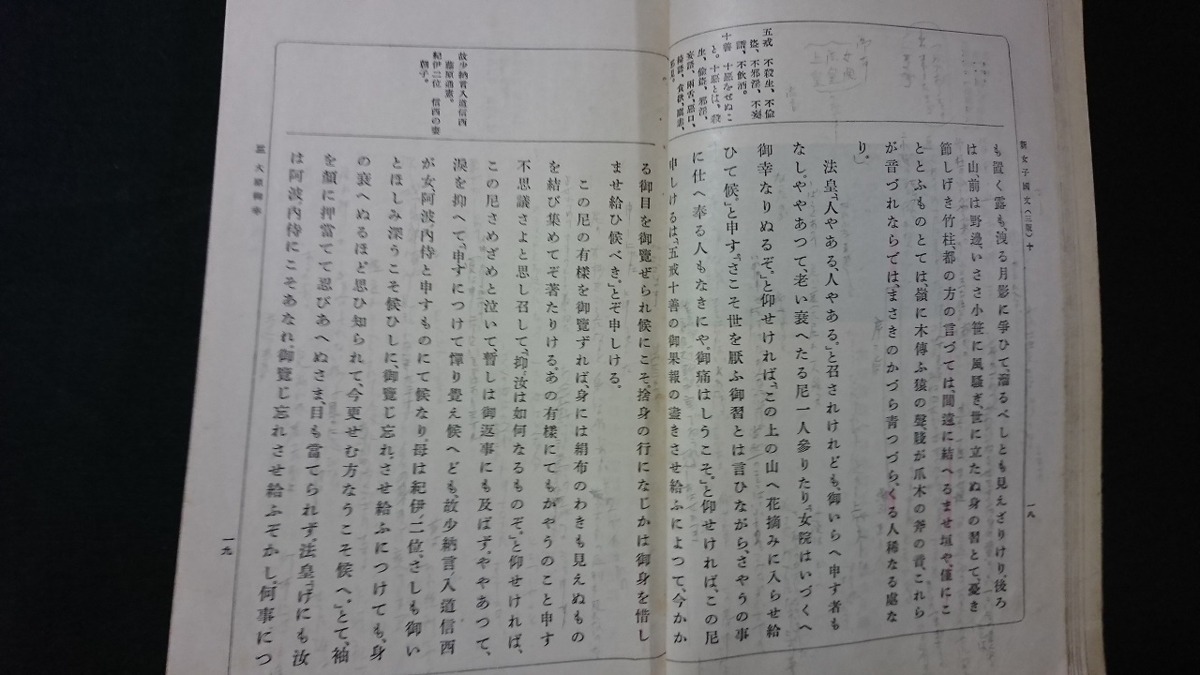 新女子國文(三版)十
一八
五戒 不殺生、不偸
盜、不邪淫、不妄
語、不飮酒。
十善 十惡をせぬこ
と。十惡とは、殺
生、偸盜、邪淫、
妄語、兩舌、惡口、
綺語、貪欲、瞋恚、
も置く露も、洩る月影に爭ひて、溜るべしとも見えざりけり。後ろ
は山前は野邊、いささ小笹に風騷ぎ、世に立たぬ身の習とて、憂き
節しげき竹柱、都の方の言づては、間遠に結へるませ垣や、僅にこ
ととふものとては、嶺に木傳ふ猿の聲、賤が爪木の斧の音、これら
が音づれならでは、まさきのかづら靑つづら、くる人稀なる處な
り。
法皇、「人やある、人やある。」と召されけれども、御いらへ申す者も
なし。ややあつて、老い衰へたる尼一人參りたり。「女院はいづくへ
御幸なりぬるぞ。」と仰せければ、「この上の山へ花摘みに入らせ給
ひて候。」と申す。「さこそ世を厭ふ御習とは言ひながら、さやうの事
に仕へ奉る人もなきにや、御痛はしうこそ。」と仰せければ、この尼
申しけるは、「五戒十善の御果報の盡きさせ給ふによつて、今かか
る御目を御覽ぜられ候にこそ。捨身の行になじかは御身を惜し
ませ給ひ候べき。」とぞ申しける。
この尼の有樣を御覽ずれば、身には絹布のわきも見えぬもの
を結び集めてぞ著たりける。あの有樣にてもかやうのこと申す
不思議さよと思し召して、「抑汝は如何なるものぞ。」と仰せければ、
この尼さめざめと泣いて、暫しは御返事にも及ばず。ややあつて、
淚を抑へて、「申すにつけて憚り覺え候へども、故少納言入道信西
が女、阿波內侍と申すものにて候なり。母は紀伊二位、さしも御い
とほしみ深うこそ候ひしに、御覽じ忘れさせ給ふにつけても、身
の衰へぬるほど思ひ知られて、今更せむ方なうこそ候へ。」とて、袖
を顏に押當てて忍びあへぬさま、目も當てられず。法皇、「げにも汝
は阿波內侍にこそあなれ。御覽じ忘れさせ給ふぞかし。何事につ
故少納言入道信西
藤原通憲。
紀伊二位 信西の妻
朝子。
大原御幸
一九